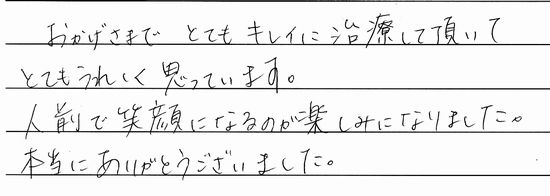 おかげさまで とてもキレイに治療して頂いて
とてもうれしく思っています。
人前で笑顔になるのが楽しみになりました。
本当にありがとうございました。